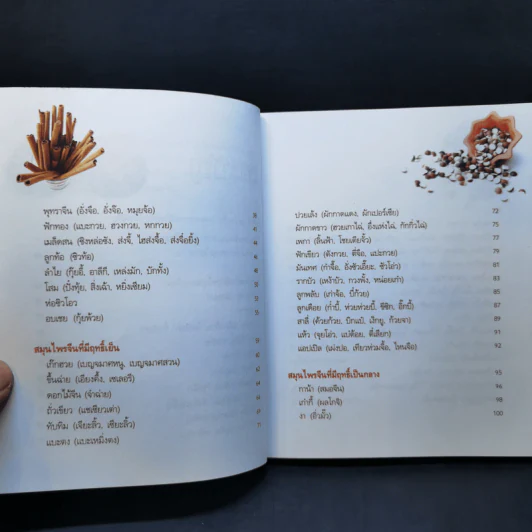 พุทราจีน (อั่งจือ, อั่งจ๊อ, หมุยจ้อ)
ฟักทอง (แบะกวย, ฮวงกวย, หกกวย)
เมล็ดสน (ซิงหล่อซัง, ส่งจี้, ไฮส่งจื้อ, ส่งจื่อยิ้ง)
ลูกท้อ (ซิวท้อ)
ลำไย (กุ้ยอี้, อาลีกี, เหล่งมัก, บักทั้ง)
โสม (ปั่งทุ้ย, สิ่งเฉ้า, หยิ่งเซียม)
ห่อซิวโอว
อบเชย (กุ้ยพ้วย)
สมุนไพรจีนที่มีฤทธิ์เย็น
เก๊กฮวย (เบญจมาศหนู, เบญจมาศสวน)
ขึ้นฉ่าย (เฮียงคึ้ง, เซเลอรี)
ดอกไม้จีน (จำฉ่าย)
ถั่วเขียว (แชเชียวเต่า)
ทับทิม (เจียะลิ้ว, เซียะลิ้ว)
แบะตง (แบะเหมิ่งตง)
ปวยเล้ง (ผักกาดแดง, ผักเปอร์เซีย) 72
ผักกาดขาว (ฮวยเกาไฉ่, อึ้งแห่งไฉ่, กักกั่วไฉ่) 75
เพกา (ลิ้นฟ้า, โซยเตียจั้ว) 77
ฟักเขียว (ตังกวย, ตี่จือ, แปะกวย) 79
มันเทศ (กำจื้อ, อั่งซัวเอี๊ยะ, ชัวโอ่ว) 81
รากบัว (เหง้าบัว, กวงพั้ง, หน่อยเก่า) 83
ลูกพลับ (เก่าจ้อ, บี่ก้วย) 85
ลูกเดือย (กำบี้, ห่วยห่วยบี้, ซีซิก, อี้กบี้) 87
สาลี่ (ค้วยก้วย, บิกแป๋, มักยู, ก้วยจา) 89
แห้ว (จุยโอ่ว, แปต้อย, ตี่เลือก) 91
แอปเปิล (เผ่งปอ, เทียวห่วมจื้อ, ไหนจือ) 92
สมุนไพรจีนที่มีฤทธิ์เป็นกลาง 95
กาน้า (สมอจีน) 96
เก๋ากี้ (ผลโกจิ) 98
งา (อิ่วมั้ว) 100